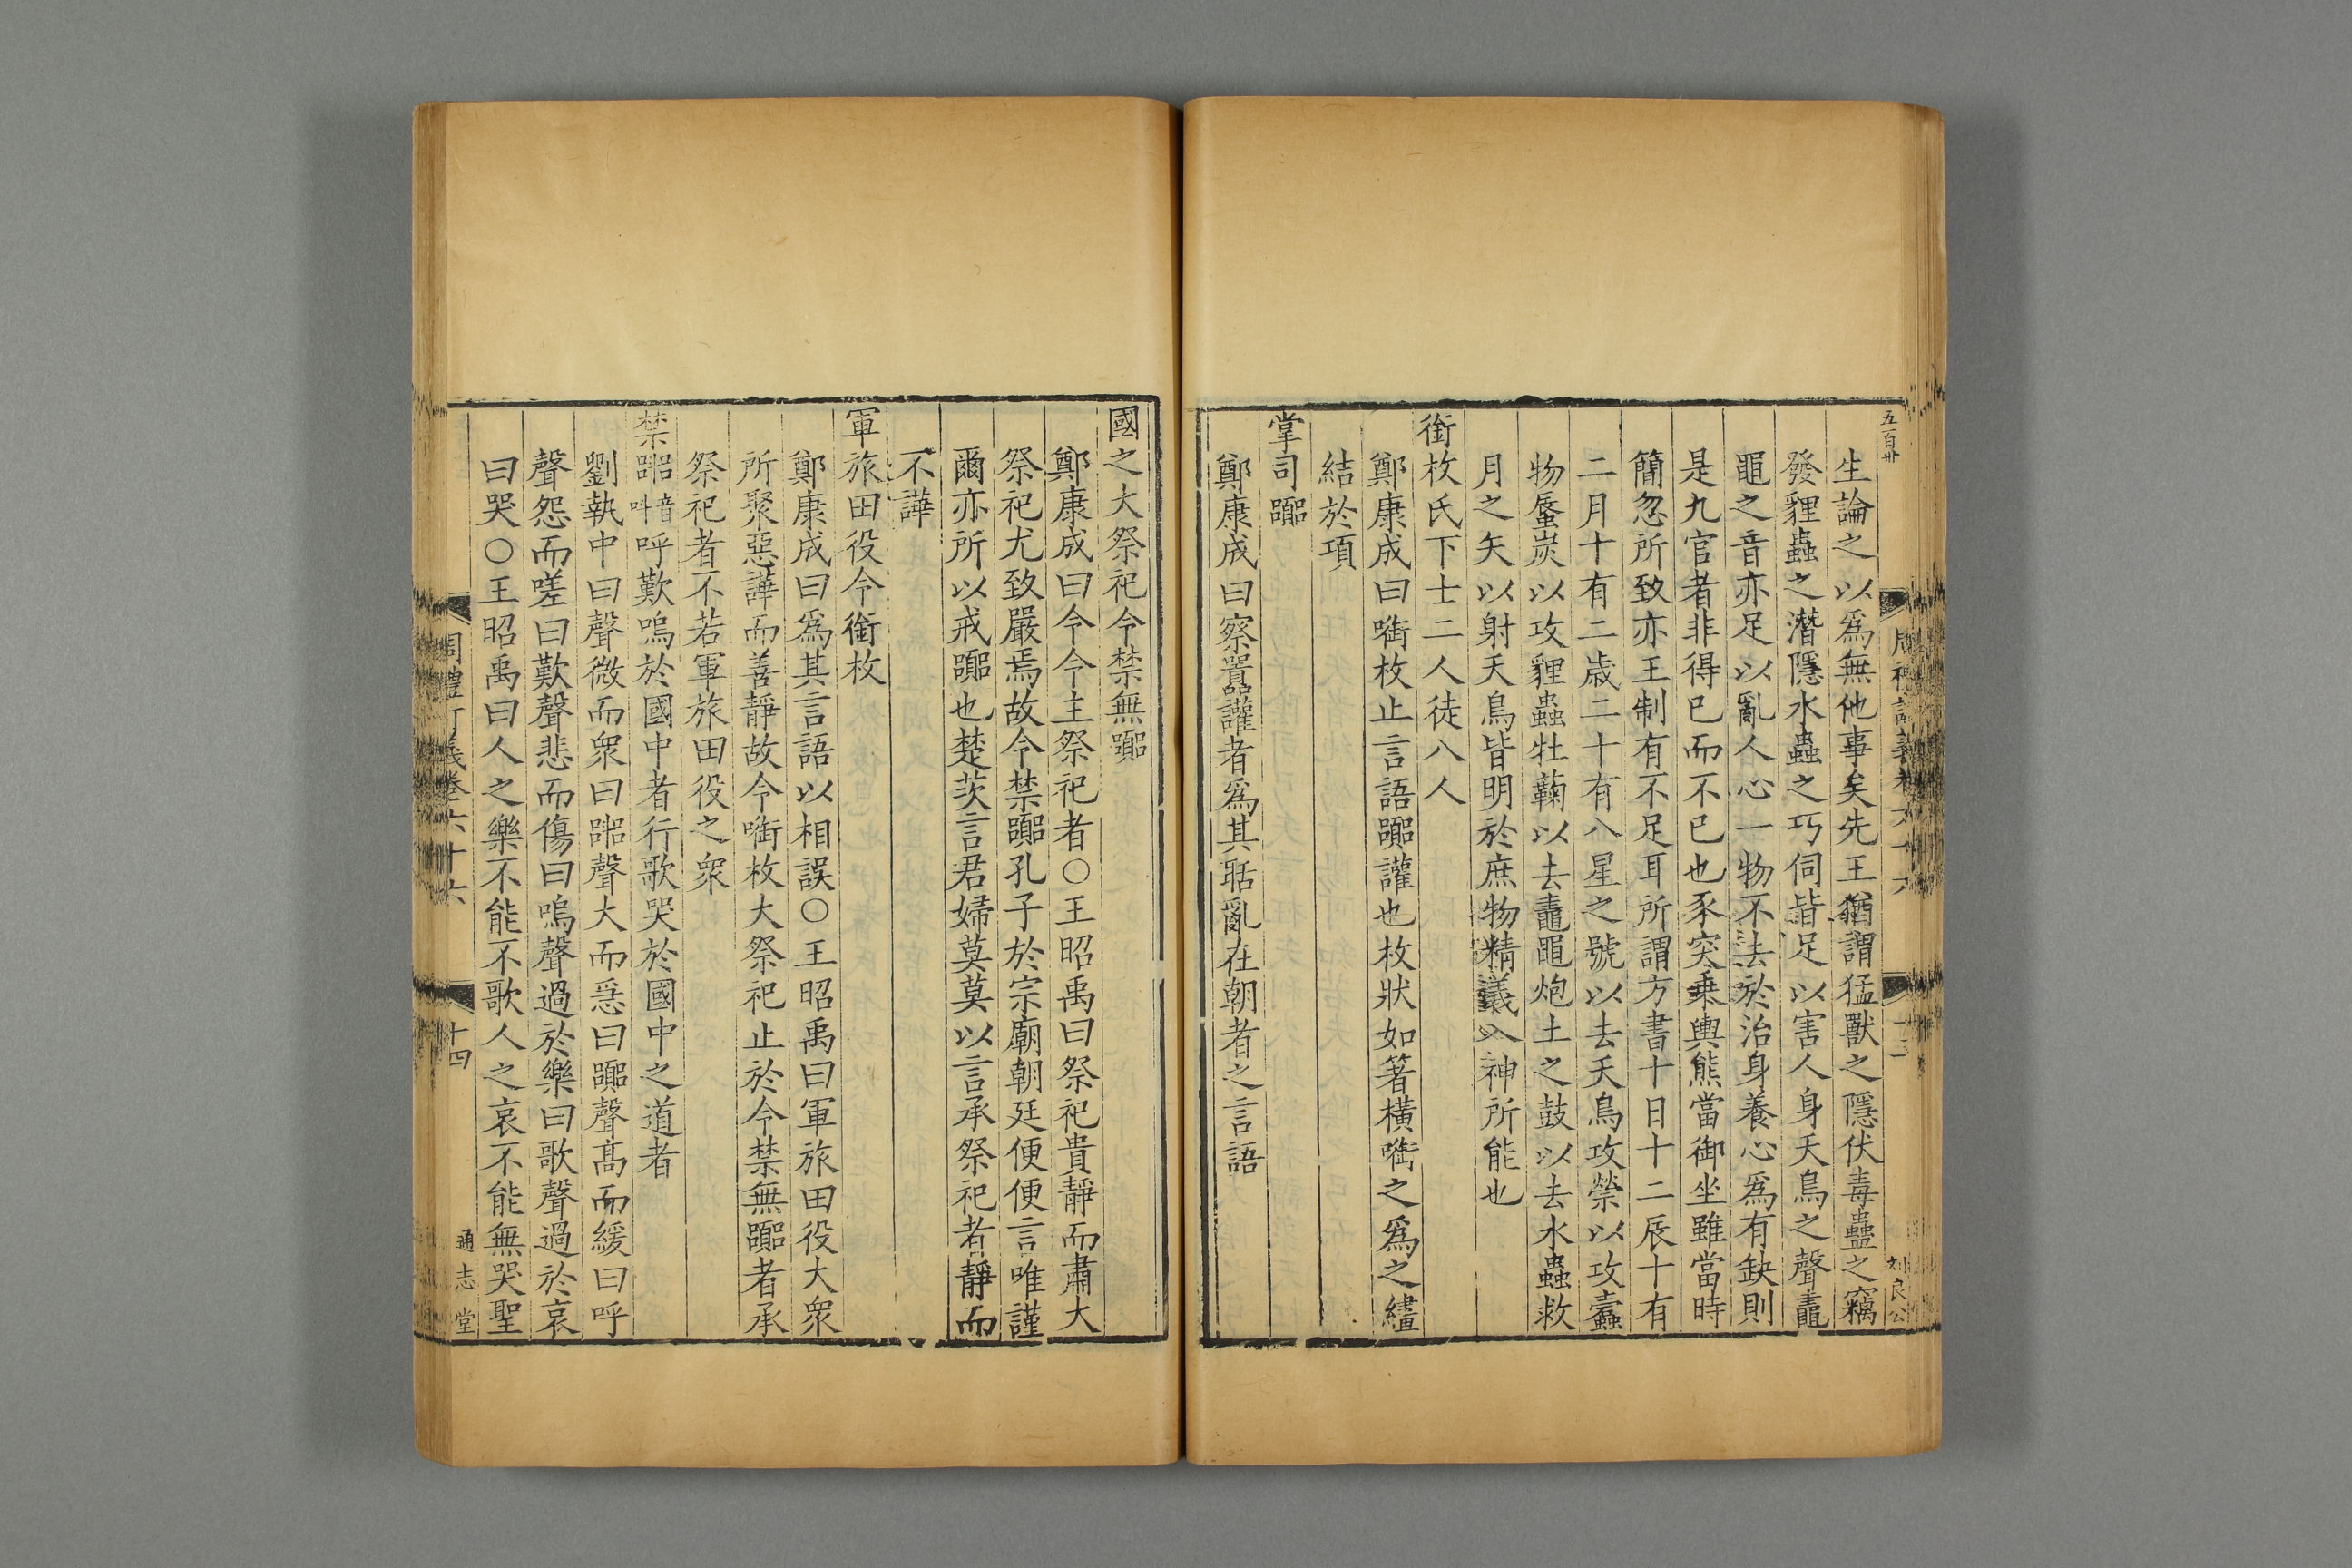 五百卅
生論之以為無他事矣先王猶謂猛獸之隱伏毒蠱之竊
發貍蟲之潛隱水蟲之巧伺皆足以害人身夭鳥之聲鼃
黽之音亦足以亂人心一物不去於治身養心為有缺則
是九官者非得已而不已也豕突乗輿熊當御坐雖當時
簡忽所致亦王制有不足耳所謂方書十日十二辰十有
二月十有二歳二十有八星之號以去夭鳥攻禜以攻蠹
物蜃炭以攻貍蟲牡蘜以去鼃黽炮土之鼓以去水蟲救
月之矢以射夭鳥皆明於庶物精義入神所能也
銜枚氏下士二人徒八人
鄭康成曰銜枚止言語嚻讙也枚狀如箸橫銜之為之繣
結於項
掌司嚻
鄭康成曰察嚻讙者為其聒亂在朝者之言語
國之大祭祀令禁無嚻
鄭康成曰令令主祭祀者○王昭禹曰祭祀貴靜而肅大
祭祀尤致嚴焉故令禁嚻孔子於宗廟朝廷便便言唯謹
爾亦所以戒嚻也楚茨言君婦莫莫以言承祭祀者靜而
不譁
軍旅田役令銜枚
鄭康成曰為其言語以相誤○王昭禹曰軍旅田役大衆
所聚惡譁而善靜故令銜枚大祭祀止於令禁無嚻者承
祭祀者不若軍旅田役之衆
禁嘂音叫呼歎嗚於國中者行歌哭於國中之道者
劉執中曰聲微而衆曰嘂聲大而急曰嚻聲髙而緩曰呼
聲怨而嗟曰歎聲悲而傷曰嗚聲過於樂曰歌聲過於哀
曰哭○王昭禹曰人之樂不能不歌人之哀不能無哭聖
周禮訂義卷六十六
十四
通志堂